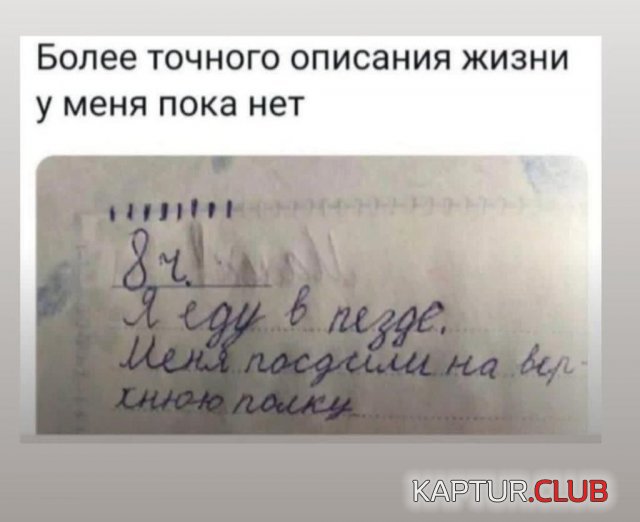 Более точного описания жизни
у меня пока нет
8 ч.
Я еду в пезде.
Меня посдили на вер-
хнюю полку
KAPTUR.CLUB